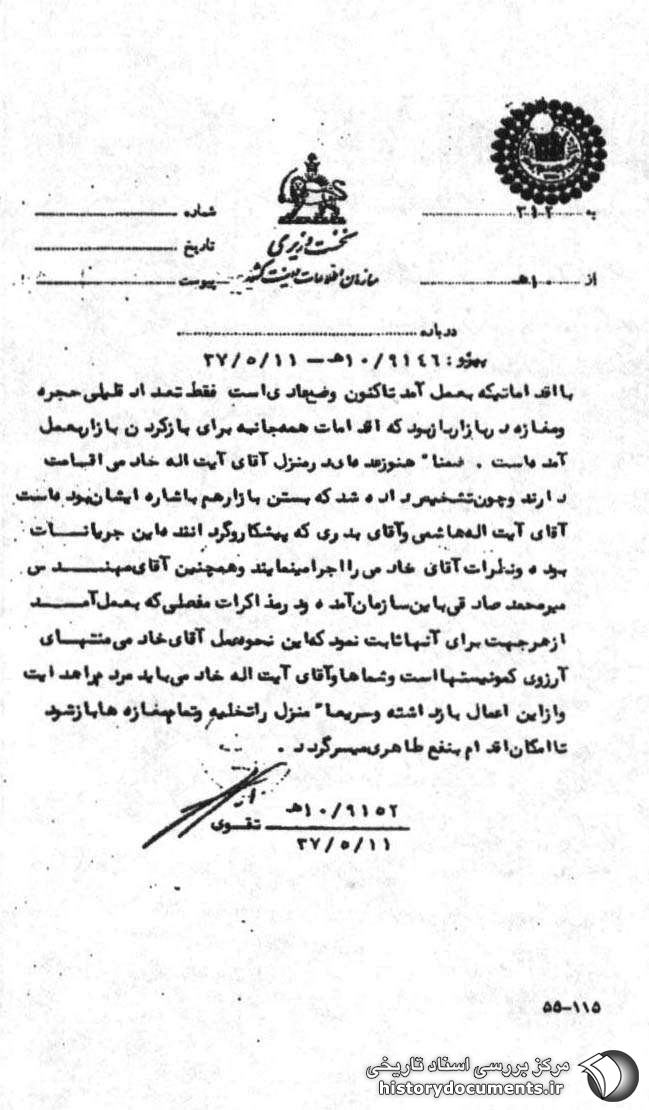 به ۳۱۲
شماره
نخست وزیری
تاریخ
سازمان اطلاعات و امنیت کشور
از ۱۰هـ
پیوست
درباره
پیرو : ۱۰/۹۱۴۶هـ – ۳۷/۵/۱۱
بااقداماتیکه بعمل آمد تاکنون وضعادی است فقط تعداد قلیلی حجره
ومغازه در بازار بازبود که اقدامات همه‌جانبه برای بازکردن بازاربعمل
آمده‌است . ضمنا" هنوزعده‌ای در منزل آقای آیت اله خادمی اقامت
دارند وچون تشخیص داده شد که بستن بازارهم باشاره ایشان بوده‌است
آقای آیت اله هاشمی وآقای بدری که پیشکاروگرداننده‌این جریانات
بوده ونظرات آقای خادمی رااجرامینمایند وهمچنین آقای مهندس
میرمحمد صادقی باین سازمان آمده ودرمذاکرات مفصلی که بعمل آمد
ازهرجهت برای آنهاثابت نمود که‌این نحوعمل آقای خادمی منتهای
آرزوی کمونیستهااست وشماهاوآقای آیت اله خادمی باید مردم راهدایت
وازاین اعمال بازداشته وسریعا" منزل راتخلیه وتمام مغازه هابازشود
تاامکان اقدام بنفع طاهری میسرگردد .
۱۰/۹۱۵۲هـ
تقوی
۳۷/۵/۱۱
۵۵-۱۱۵
مرکز بررسی اسناد تاریخی
historydocuments.ir